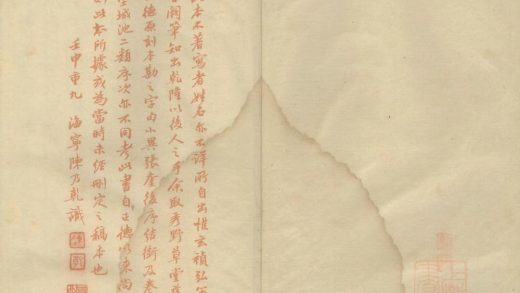 本不著寫者姓名亦不詳所自出惟玄禎弘
闕筆知出乾隆以後人之手余取秀野草堂
德原刻本勘之字句小異張奎後序結銜及卷
城池二類序次亦不同考此書自正德以來尚
則此本所據或為當時未經刪定之稿本也
壬申重九 海寧陳乃乾識